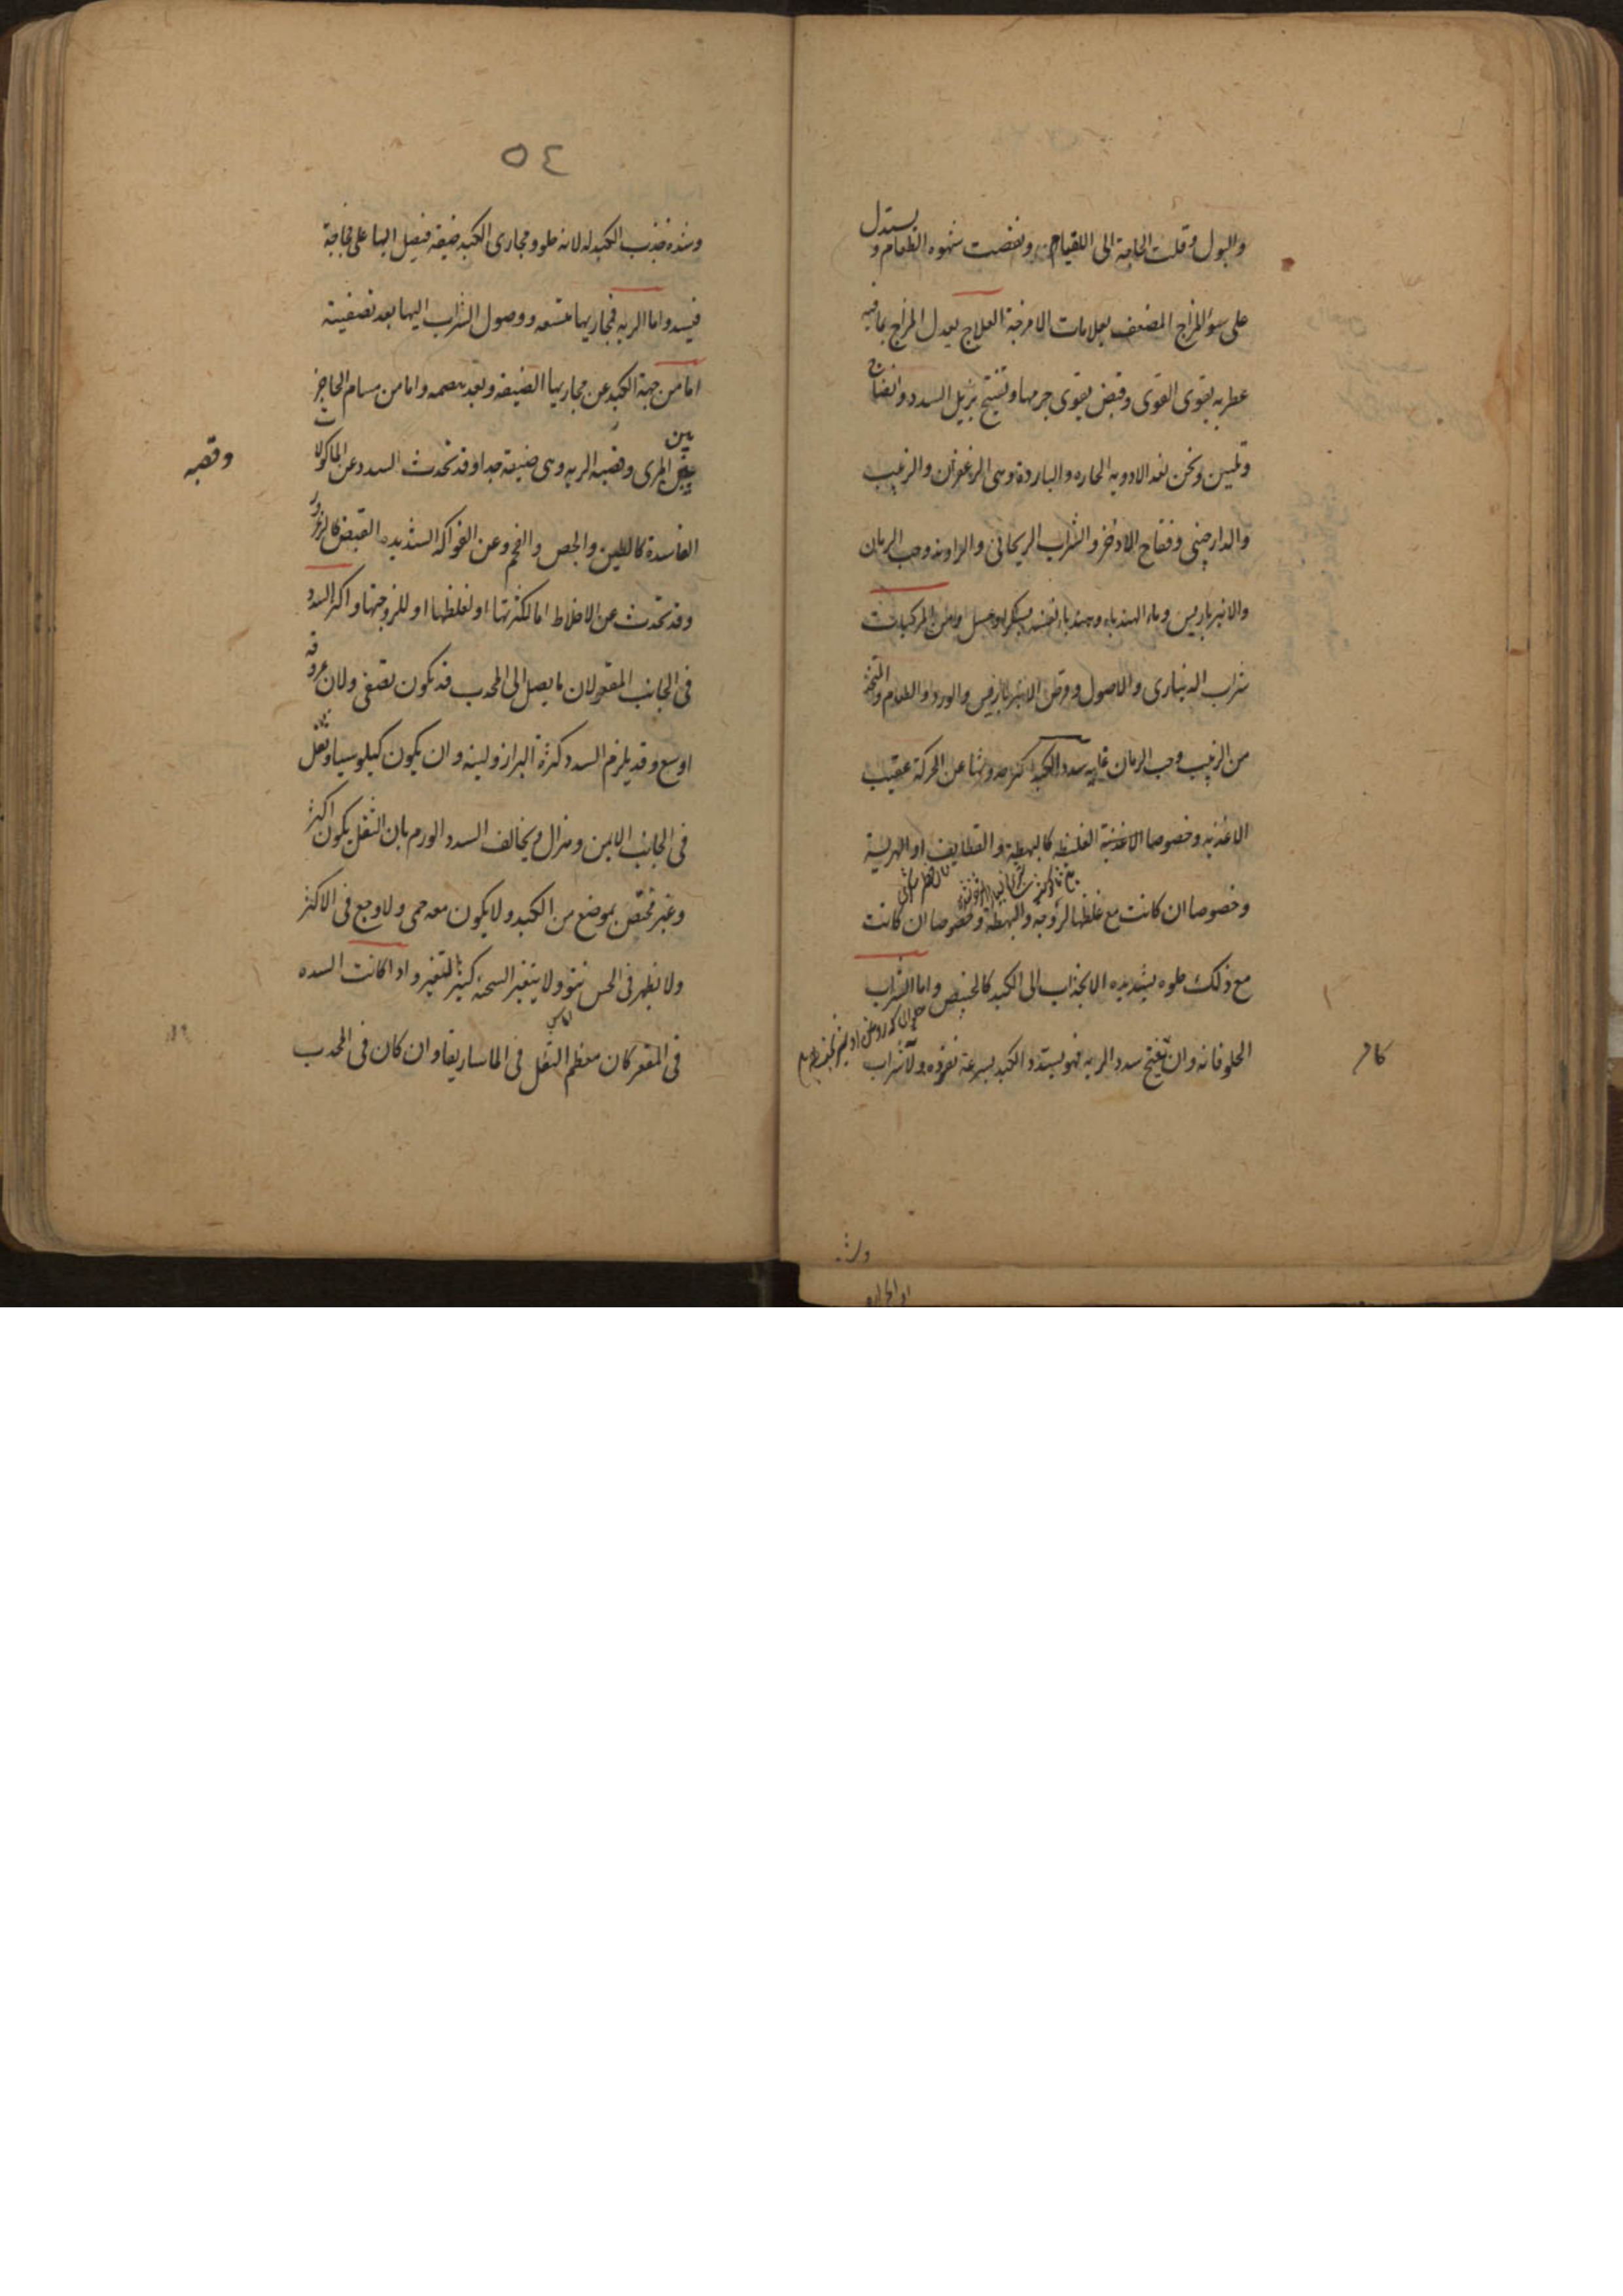 والبول وقلت الحاجة الى القيام ونقصت شهوه الطعام و يستدل
على سوء المزاج المضعف بعلامات الامزجة العلاج يعدل المزاج بمافيه
عطريه يقوى القوى وقبض يقوى جرمها وتفتيح يزيل السدد وانضاج
وتليين ونحن نعد الادويه الحاره والباردة وهى الزعفران والزبيب
والدارصينى وفقاح الاذخر والشراب الريحانى والراوند وحب الرمان
والانبرباريس وماء الهندباء وهندباء نفسه بسكر او عسل ومن المركبات
شراب الدينارى والاصول وقرص الانبرباريس والورد والطعام المتخذ
من الزبيب وحب الرمان غايه سدد الكبد اكثر حدوثها عن الحركة عقيب
الاغذيه وخصوصا الاغذية الغليظه كالبهطه والقطايف او الهريسة
وخصوصا ان كانت مع غلظها لزوجه والبهطة وخصوصا ان كانت
مع ذلك حلوه يشتد بده الانجذاب الى الكبد كالخبيص واما الشراب
الحلو فانه وان يفتح سدد الريه فهو يسدد الكبد بسرعة نفوذه ولا شراب
٥٤
وشدة جذب الكبد له لانه حلو ومجارى الكبد ضيقة فيصل اليها على فجاجة
فيسد واما الريه فمجاريها متسعه ووصول الشراب اليها بعد تصفيته
اما من جهة الكبد عن مجاريها الضيقه وبعد هضمه واما من مسام الحاجز
بين المرى وقصبه الريه وهى ضيقة جدا وقد تحدث السدد عن الماكولات
وقصبه
الفاسدة كالطين والجص والفحم وعن الفواكه الشديده القبض كالزعرور
وقد تحدث عن الاخلاط اما لكثرتها او لغلظها او للزوجتها واكثر السدد
فى الجانب المقعر لان ما يصل الى المحدب قد يكون تصفى ولان عروقه
اوسع وقد يلزم السدد كثرة البراز ولينه وان يكون كيلوسيا وثقل
فى الجانب الايمن وهزال ويخالف السدد الورم بان الثقل يكون اكثر
وغير مختص بموضع من الكبد ولا يكون معه حمى ولا وجع فى الاكثر
ولا يظهر فى الحس نتو ولا يتغير السحنه كثير التغير واذا كانت السده
فى المقعر كان معظم الثقل فى الماساريقا وان كان فى المحدب